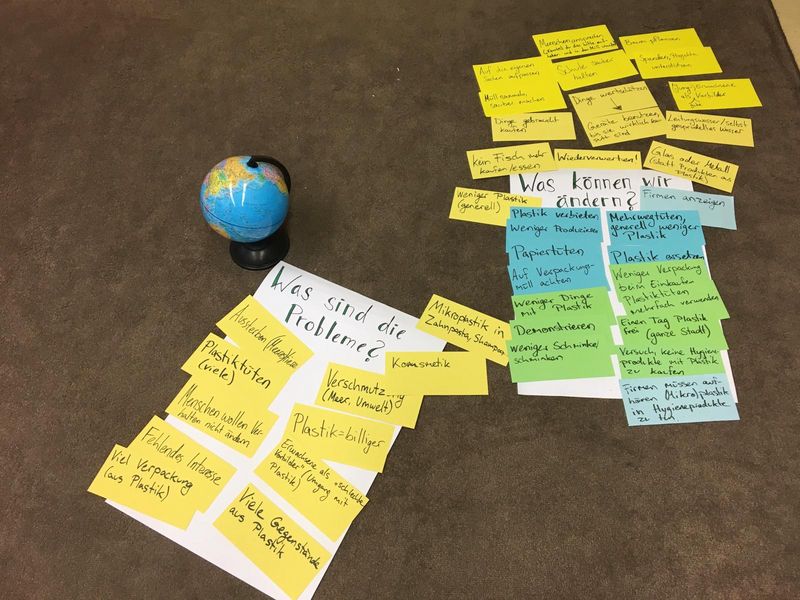 Was sind die
Probleme?
Aussterben
Plastiktüten
(viele)
Menschen wollen Ver-
halten nicht ändern
Fehlendes Interesse
Viel Verpackung
(aus Plastik)
Mikroplastik in
Zahnpasta, Shampoo
Kosmetik
Verschmutzung
(Meer, Umwelt)
Plastik=billiger
Erwachsene als "schlechte
Vorbilder" (Umgang mit
Plastik)
Viele Gegenstände
aus Plastik
Menschen
Bäume pflanzen
Auf die eigenen
Sachen aufpassen
Schule sauber
halten
Spenden, Projekte
unterstützen
Müll sammeln,
sauber machen
Dinge wertschätzen
Geräte benutzen,
bis sie wirklich ka-
putt sind
als Vorbilder
Dinge gebraucht
kaufen
Leitungswasser/selbst
gesprudeltes Wasser
Kein Fisch mehr
kaufen/essen
Wiederverwerten!
Glas oder Metall
(statt Produkten aus
Plastik)
Was können wir
ändern?
Weniger Plastik
(generell)
Firmen anzeigen
Plastik verbieten
Weniger Produzieren
Mehrwegtüten,
generell weniger
Plastik
Papiertüten
Plastik ersetzen
Auf Verpackungs-
müll achten
Weniger Verpackung
beim Einkaufen
Plastiktüten
mehrfach verwenden
Weniger Dinge
mit Plastik
Demonstrieren
Einen Tag Plastik
frei (ganze Stadt)
weniger Schminke/
schminken
Versuch, keine Hygiene
produkte mit Plastik
zu kaufen
Firmen müssen auf-
hören (Mikro)plastik
in Hygieneprodukte
zu tun